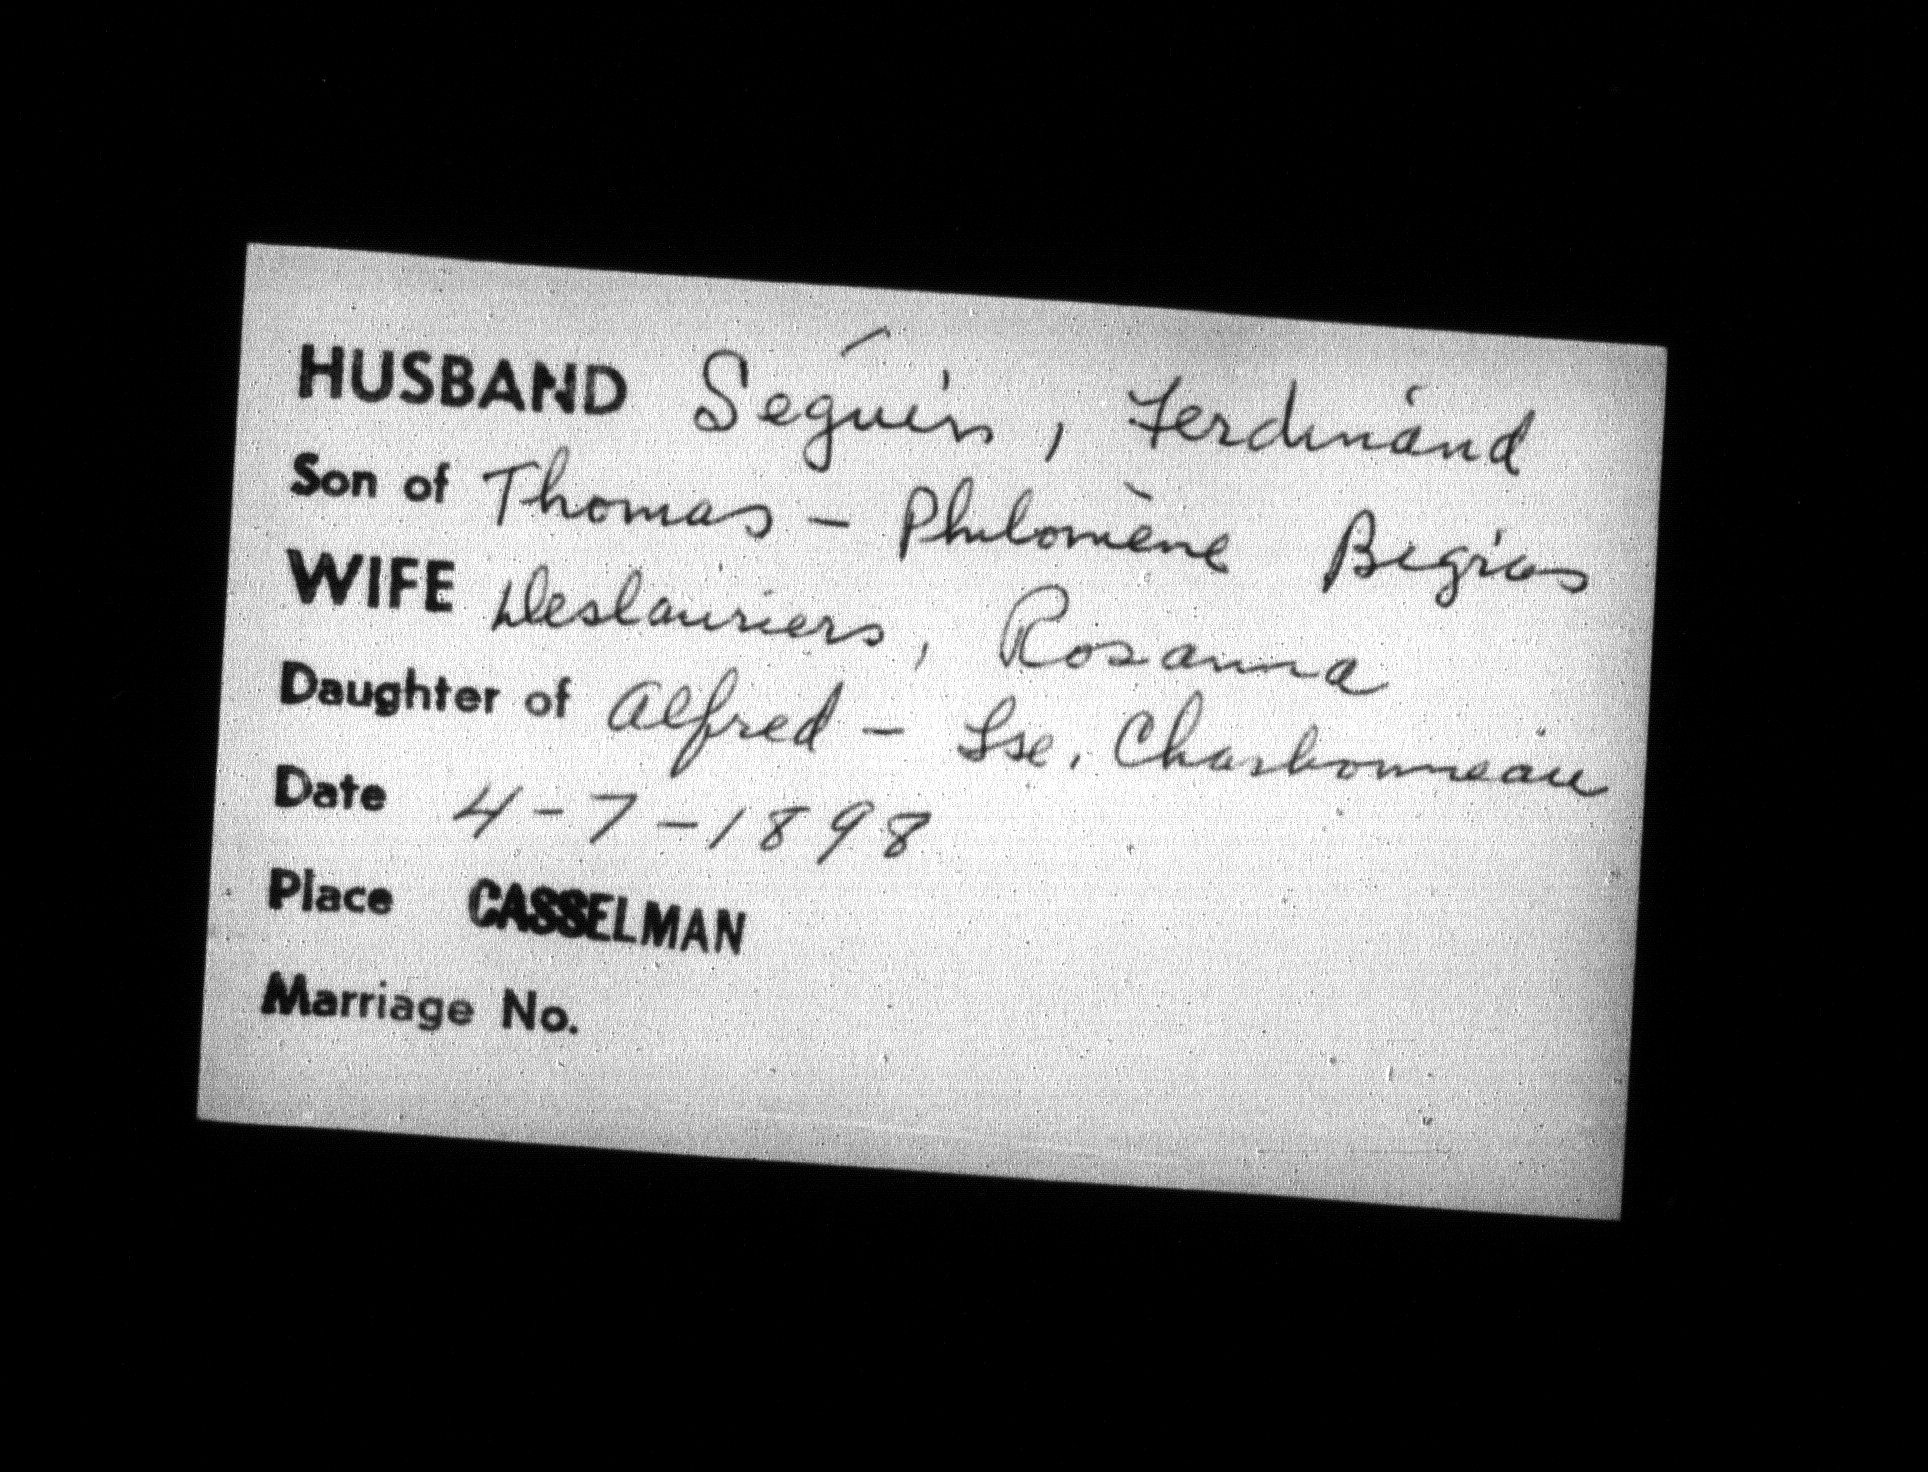 HUSBAND Séguin, Ferdinand
Son of Thomas - Philomène Bigras
WIFE Deslauriers, Rosanna
Daughter of Alfred - Lse. Charbonneau
Date 4-7-1898
Place CASSELMAN
Marriage No.